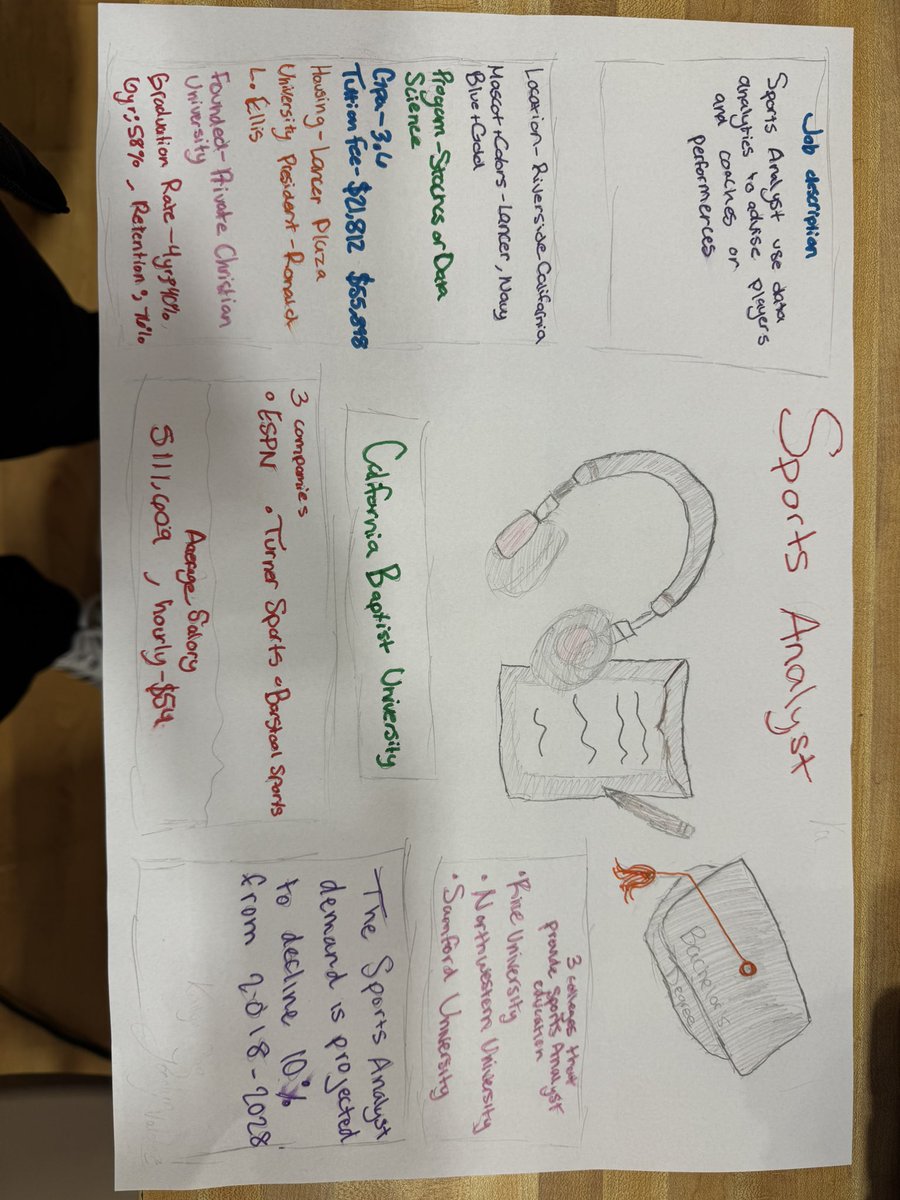 Sports Analyst
Job description
Sports Analyst use data
analytics to advise players
and coaches or
performerces
Location - Riverside California
Mascot + Colors - Lancer, Navy
Blue + Gold
Program - Stocnes or Data
Science
Gpa - 3.6
Tution fee - $21,812 $55,898
Housing - Lancer Plaza
University President - Ronald
L. Ellis
Founded - Private Christian
University
Graduation Rate - 4yrs 40%,
6yr; 58%, Retention; 76%
California Baptist University
3 companies
• ESPN • Turner Sports • Barstool sports
Average Salary
$111,609, hourly - $54
Bachelor's
Degree
3 colleges that
provide sports Analyst
education
• Rice University
• Northwestern University
• Samford University
The Sports Analyst
demand is projected
to decline 10%
from 2018-2028